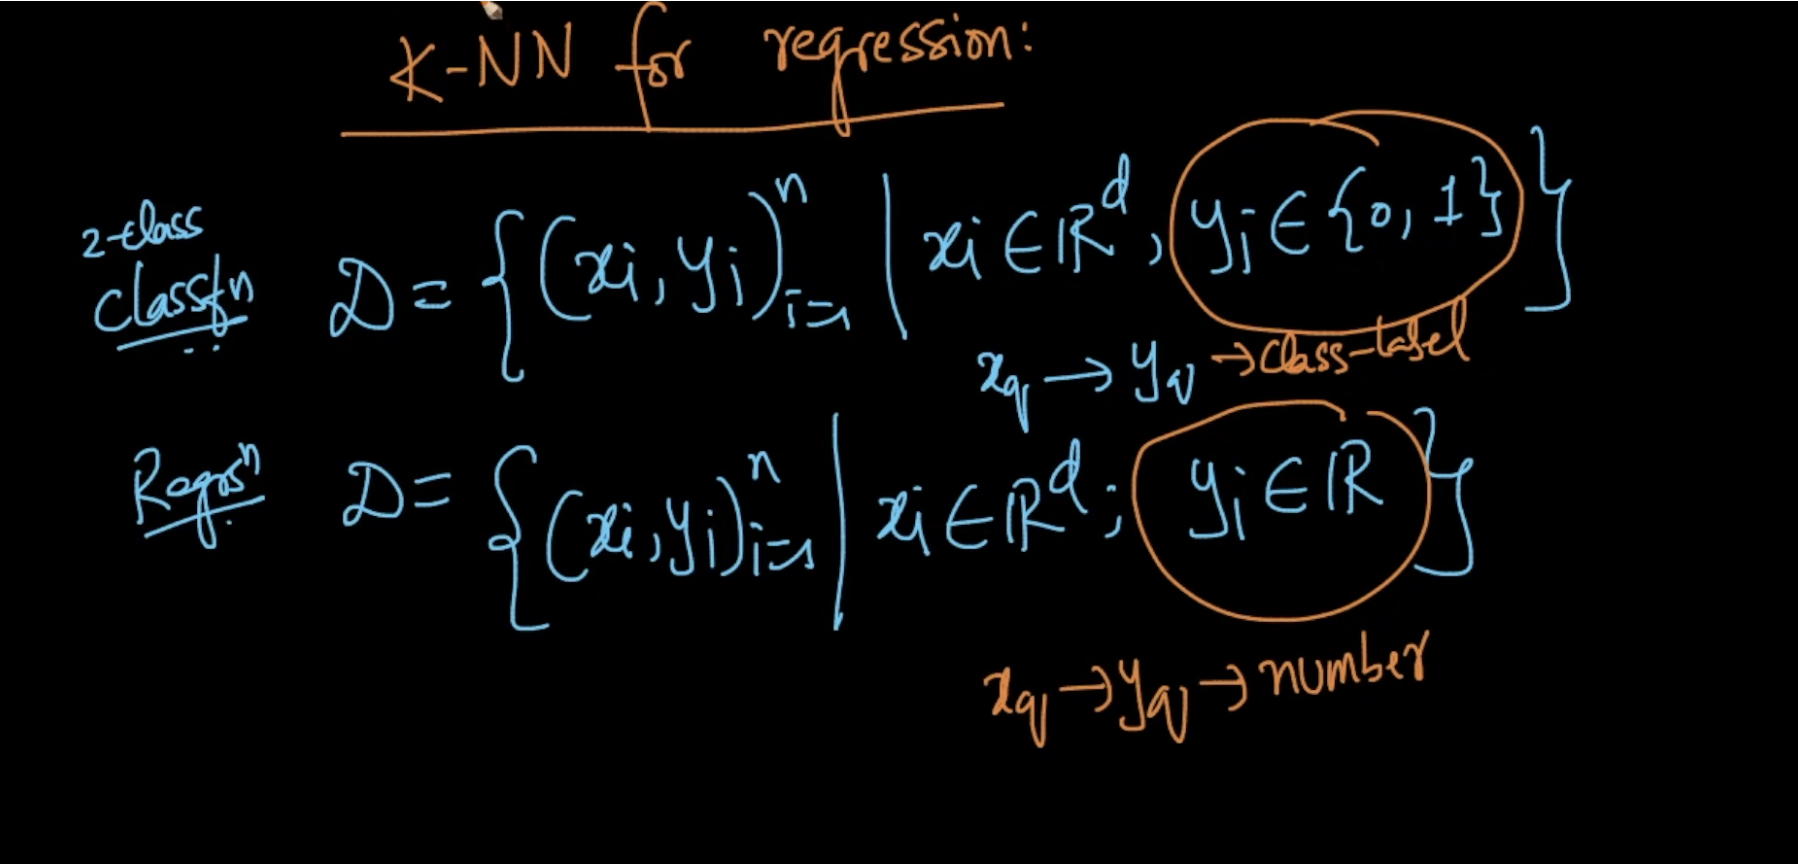 K-NN for regression:
2-class
Classfn D = { (xi, yi)ⁿi=1 | xi ∈ ℝᵈ, yi ∈ {0, 1} }
xq → yq → Class-label
Regrsⁿ D = { (xi, yi)ⁿi=1 | xi ∈ ℝᵈ; yi ∈ ℝ }
xq → yq → number